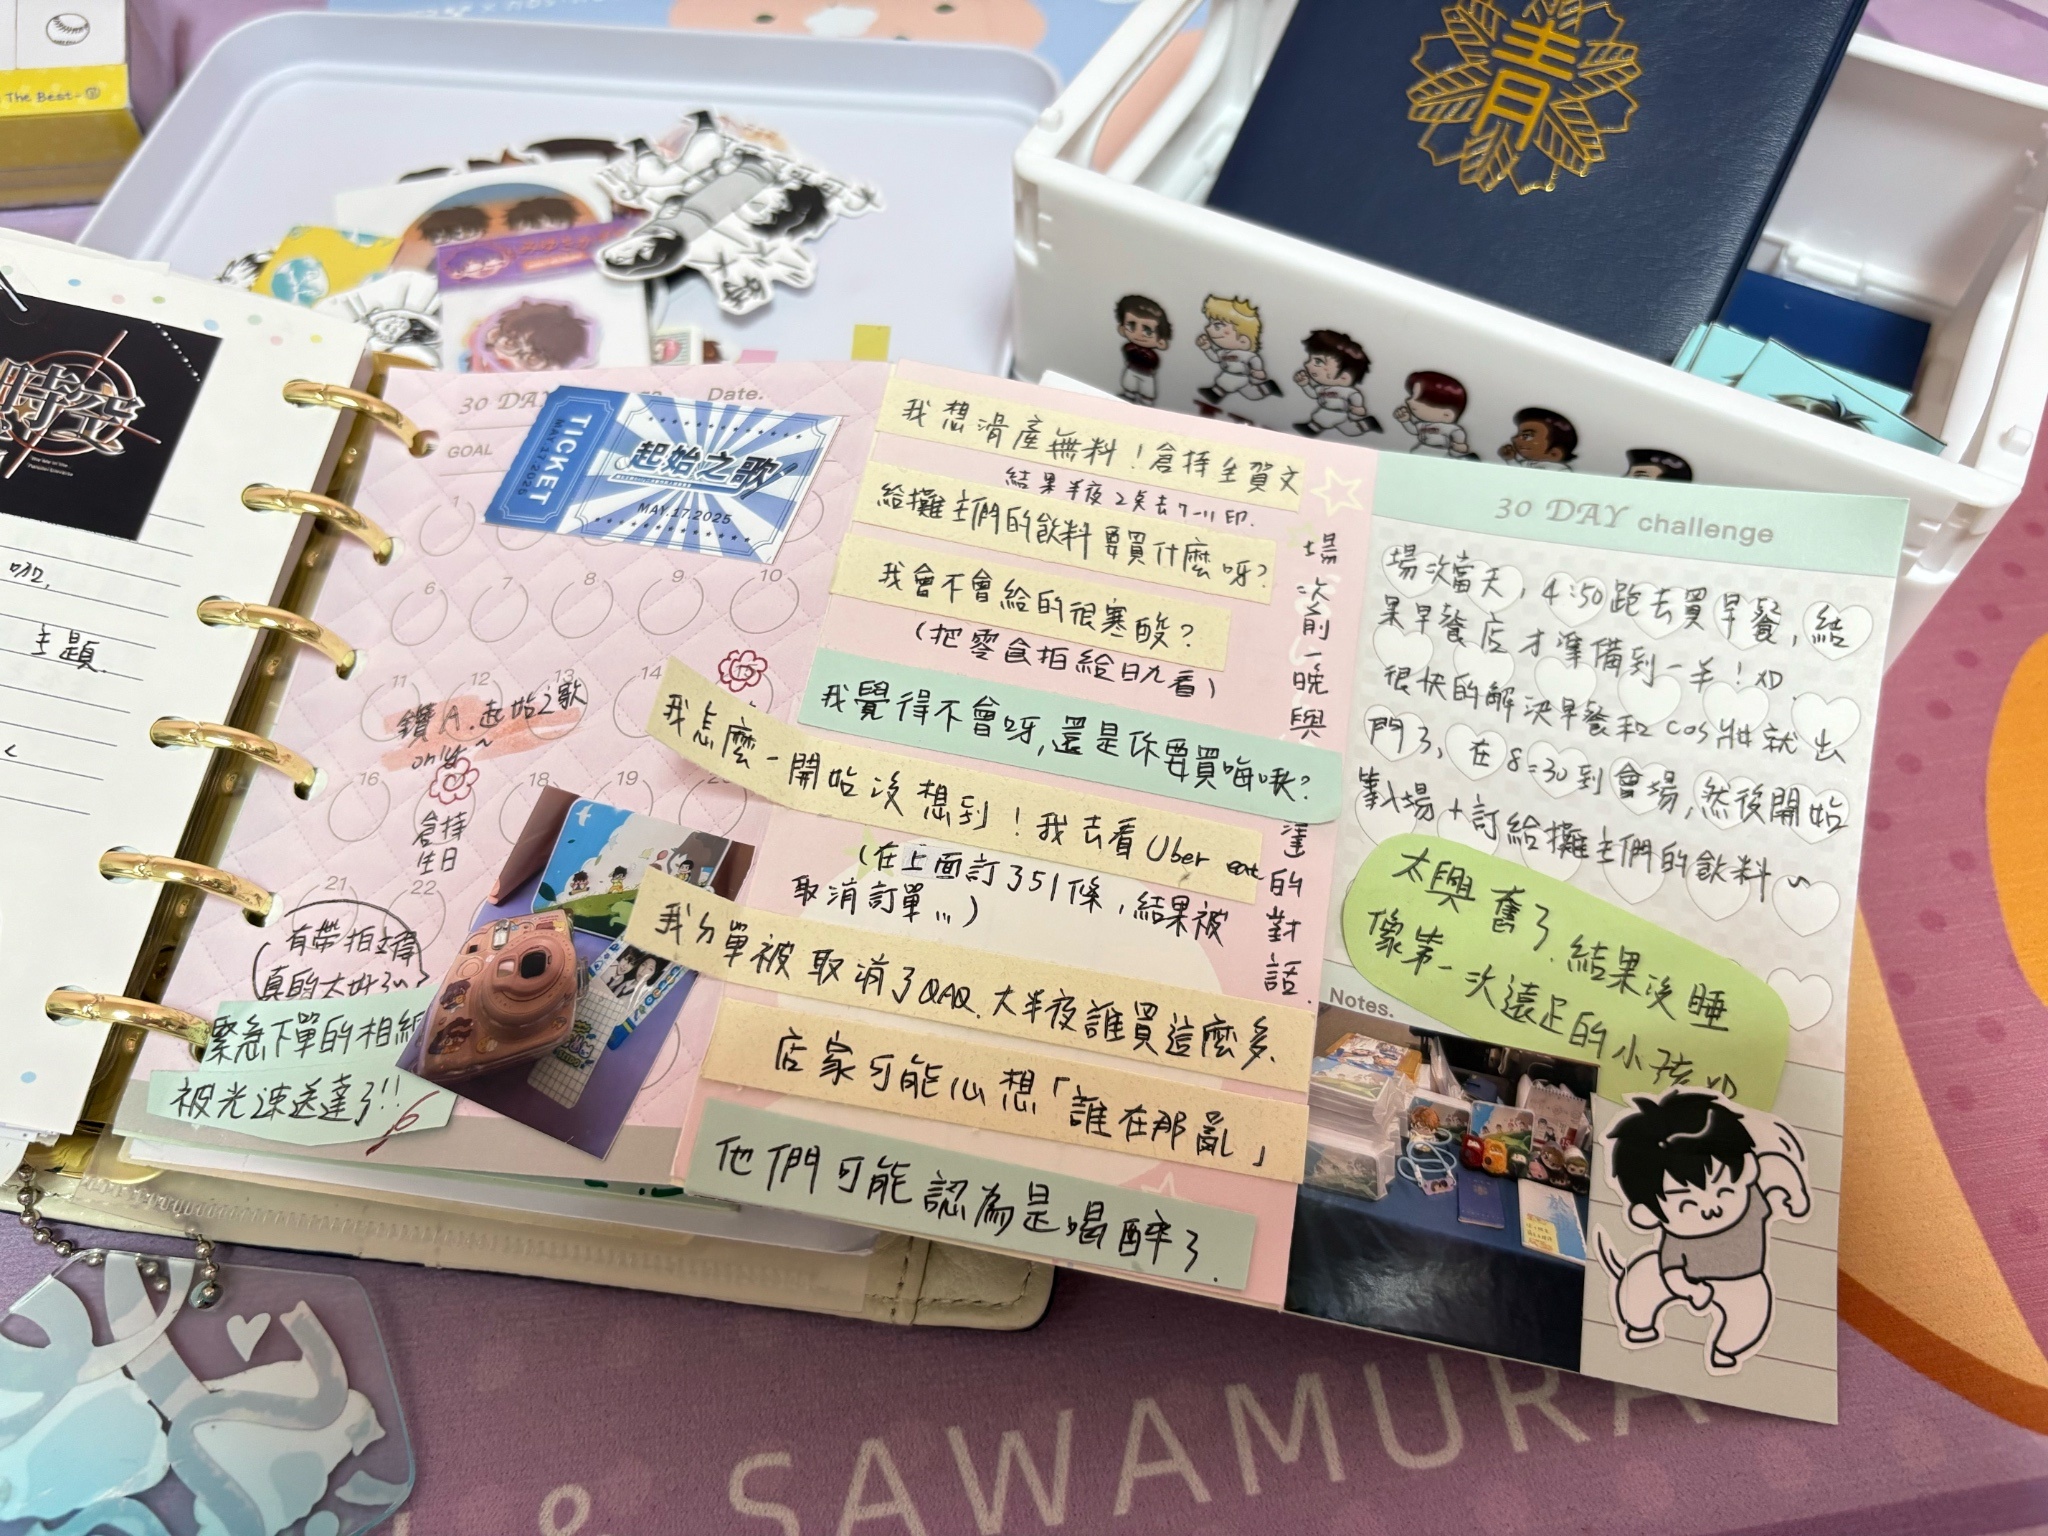 The Best-
青
時空
主題
30 DAY
Date.
GOAL
TICKET
MAY.17.2025
起始之歌
MAY.17.2025
1
6 7 8 9 10
11 12 13 14 15
鑽A.起始之歌
only~
16 18 19
倉持
生日
21 22
有帶拍立得
真的太好了
緊急下單的相紙
被光速送達了!!
我想滑產無料！倉持生賀文
結果半夜2点去7-11印.
給攤主們的飲料要買什麼呀?
我會不會給的很寒酸?
(把零食拍給日九看)
我覺得不會呀,還是你要買嗨啾?
我怎麼一開始沒想到！我去看Uber eat
(在上面訂351條,結果被
取消訂單...)
我的單被取消了QAQ.大半夜誰買這麼多.
店家可能心想「誰在那亂」
他們可能認為是喝醉了.
場次前一晚與
的對話.
30 DAY challenge
場次當天,4:50跑去買早餐,結
果早餐店才準備到一半！XD.
很快的解決早餐和cos妝就出
門了,在8:30到會場,然後開始
等入場+訂給攤主們的飲料~
太興奮了.結果沒睡
像第一次遠足的小孩XD
Notes.
& SAWAMURA